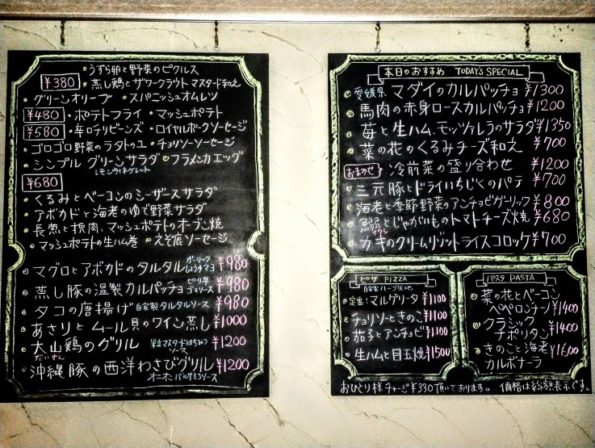 ・うずら卵と野菜のピクルス
¥380 ・蒸し鶏とザワークラウト マスタード和え
・グリーンオリーブ ・スパニッシュオムレツ
¥480 ・ポテトフライ ・マッシュポテト
¥580 ・辛口チリビーンズ ・ロイヤルポークソーセージ
・ゴロゴロ野菜のラタトゥユ ・チョリソーソーセージ
・シンプルグリーンサラダ ・フラメンカエッグ
レモンヴィネグレット
¥680
・くるみとベーコンのシーザースサラダ
・アボカドと海老のゆで野菜サラダ
・長魚と挽肉、マッシュポテトのオーブン焼
・マッシュポテトの生ハム巻 ・えぞ鹿ソーセージ
・マグロとアボカドのタルタル ガーリックしょうゆマヨ ¥980
・蒸し豚の温製カルパッチョ ¥980
・タコの唐揚げ 自家製タルタルソース ¥980
・あさりとムール貝のワイン蒸し ¥1000
・大山鶏のグリル ¥1200
だいせん
・沖縄豚の西洋わさびグリル ¥1200
オニオンバルサミコソース
本日のおすすめ TODAY'S SPECIAL
・愛媛県 マダイのカルパッチョ ¥1300
・馬肉の赤身ロースカルパッチョ ¥1200
・苺と生ハム、モッツァレラのサラダ ¥1350
・菜の花のくるみチーズ和え ¥700
おまかせ 冷前菜の盛り合わせ ¥1200
・三元豚とドライいちじくのパテ ¥700
・海老と季節野菜のアンチョビガーリック ¥800
・鱈とじゃがいものトマトチーズ焼 ¥680
・カキのクリームリゾットライスコロッケ ¥700
ピザ PIZZA
自家製ハーブ生地
・定番!マルゲリータ ¥1100
・チョリソときのこ ¥1100
・茄子とアンチョビ ¥1100
・生ハムと目玉焼 ¥1500
パスタ PASTA
・菜の花とベーコン
ペペロンチーノ ¥1400
・クラシック
ナポリタン ¥1400
・きのこと海老
カルボナーラ ¥1600
おひとり様チャージ¥330頂いております。 価格は総額表示です。